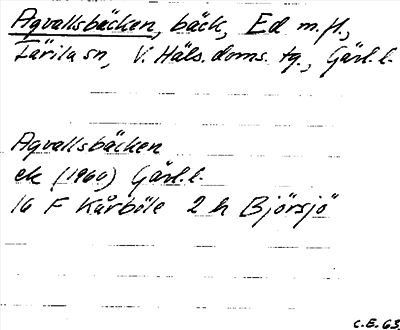 Agvallsbäcken, bäck, Ed m.fl.,
Färila sn, V. Häls. doms. tg., Gävl. l.
Agvallsbäcken
ek (1960) Gävl. l.
16 F Kårböle 2 h Björsjö
C.E. 63.